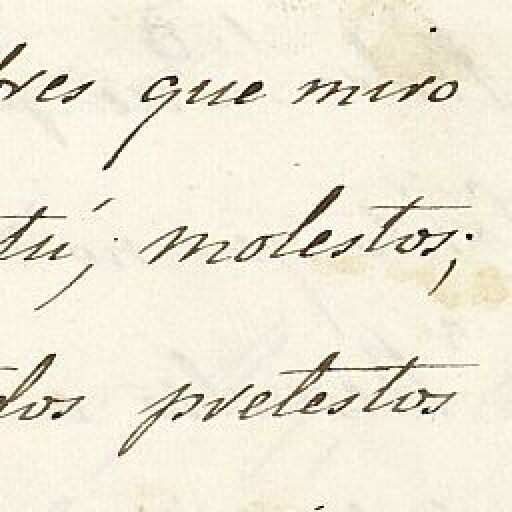 tres que miro
tú, molestos;
dos pretestos